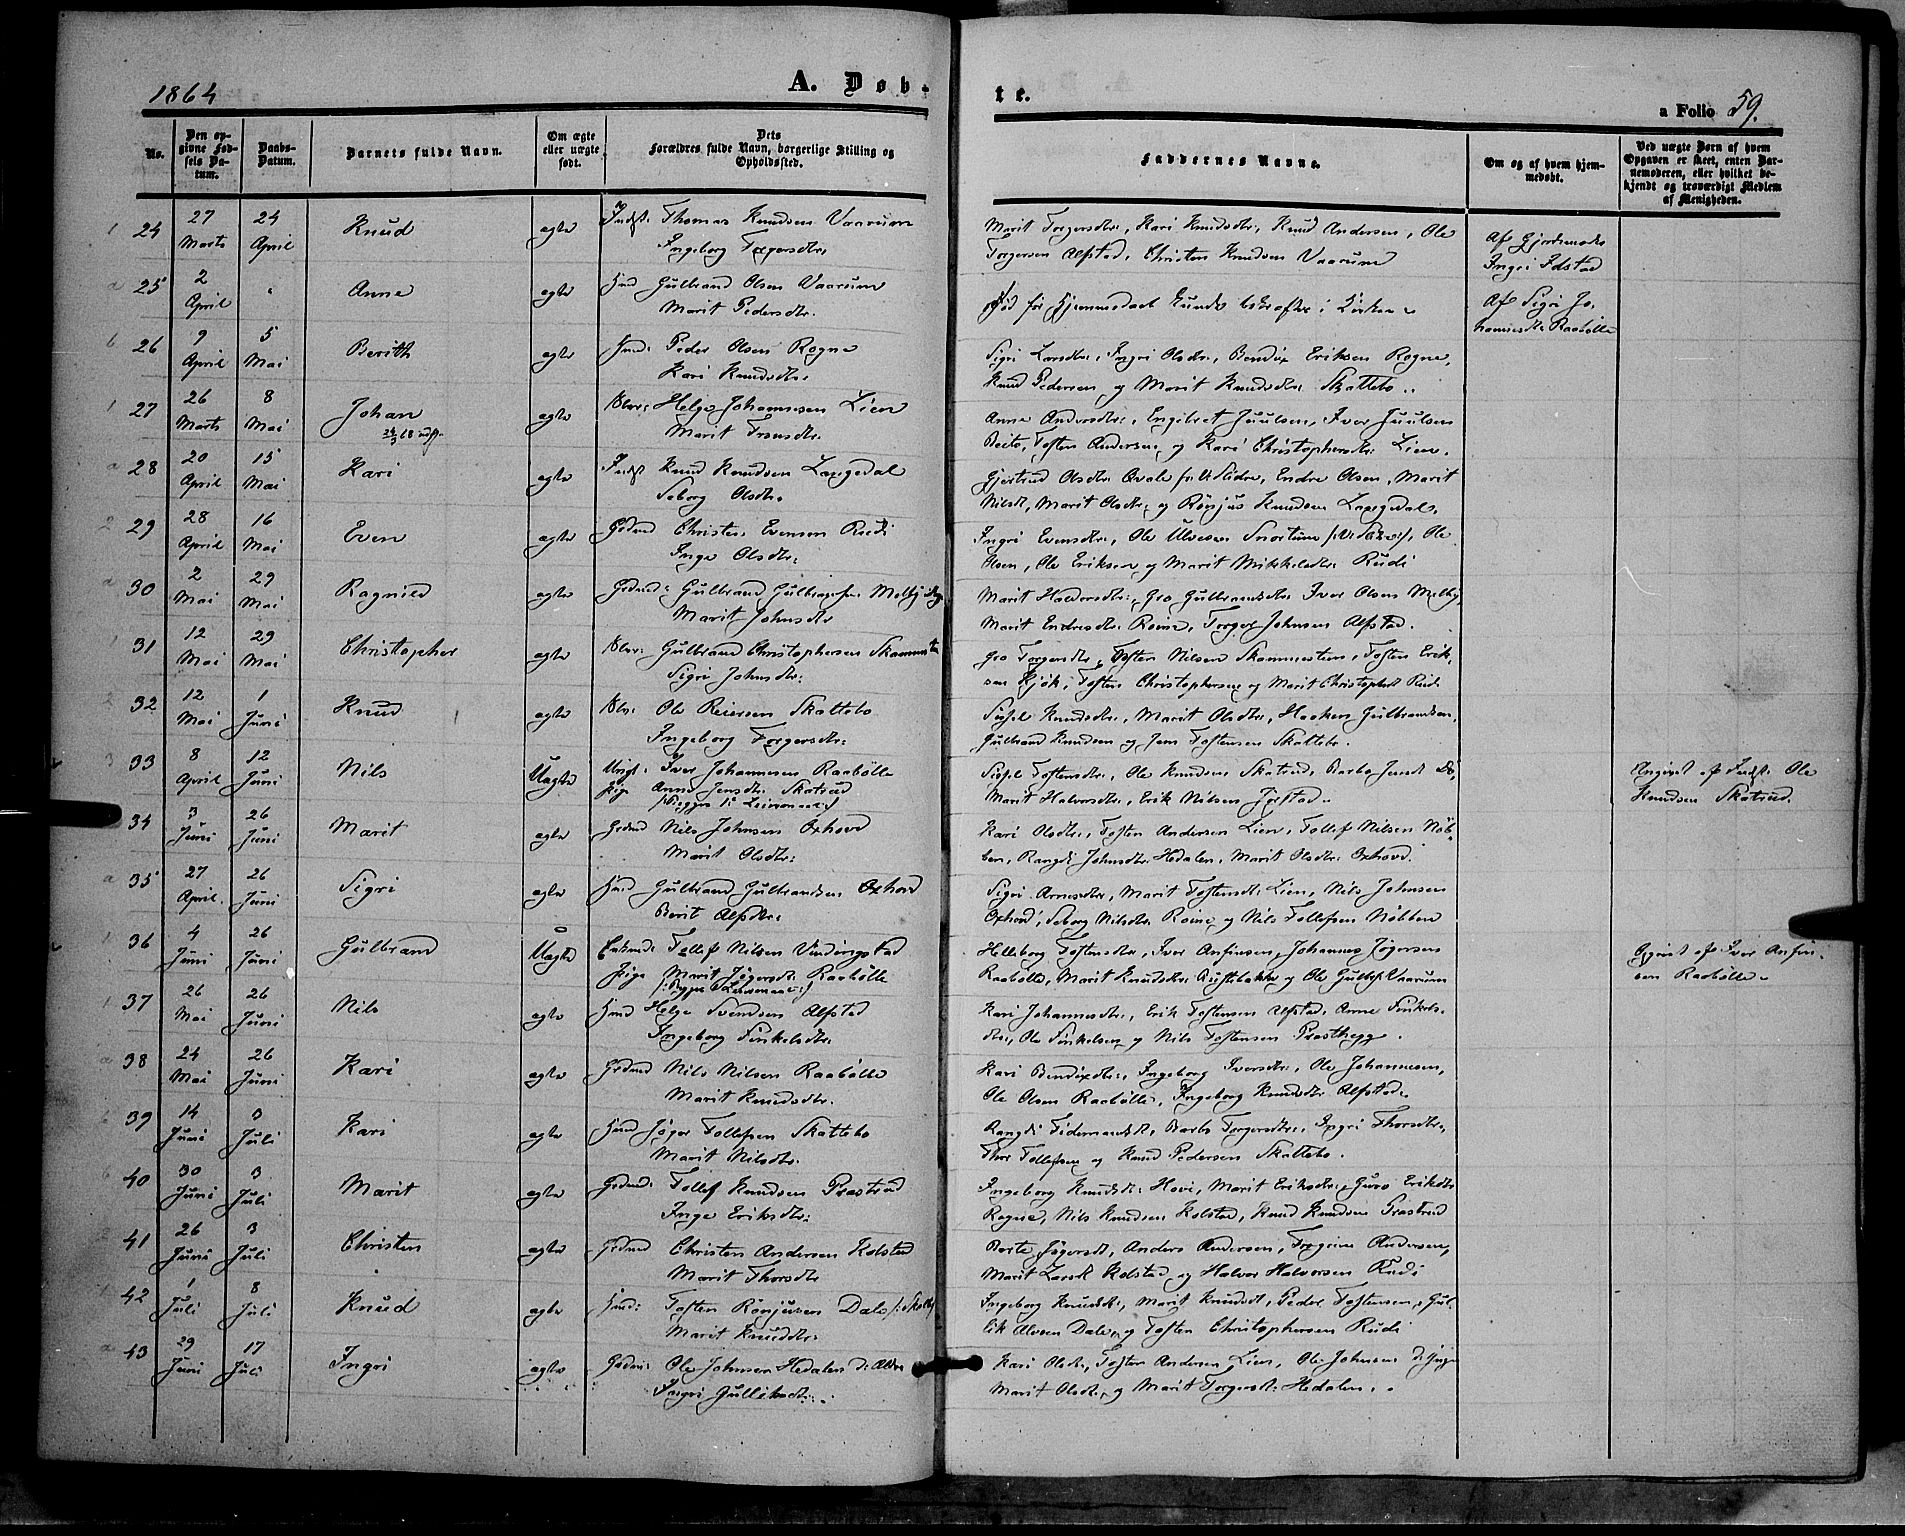 1864
A. Døb-
te.
a Folio 59.
No.
Den op-
givne Fød-
sels Da-
tum.
Daabs-
Datum.
Barnets fulde Navn.
Om ægte
eller uægte
født.
Dets
Forældres fulde Navn, borgerlige Stilling og
Opholdssted.
Faddernes Navne.
Om og af hvem hjem-
medøbt.
Ved uægte Børn af hvem
Opgaven er skeet, enten Bar-
nemoderen, eller hvilket be-
kjendt og troværdigt Medlem
af Menigheden.
24 27 Marts 24 April Knud ægte Indst: Thomas Knudsen Vaarum
Ingeborg Torgersdtr.
Marit Torgersdtr:, Kari Knudsdtr:, Knud Andersen, Ole
Torgersen Alfstad, Christen Knudsen Vaarum
Af Gjordemoder
Ingri Idstad
25 2 April Anne ægte Hmd Gulbrand Olsen Vaarum
Marit Pedersdtr.
Død før Hjemmedaab kunde bekræftes i Kirken
Af Sigri Jo-
hannesdtr: Raabølle
26 9 April 5 Mai Berith ægte Hmd: Peder Olsen Rogne
Kari Knudsdtr:
Sigri Larsdtr:, Ingri Olsdtr:, Bendix Eriksen Rogne,
Knud Pedersen og Marit Knudsdtr: Skattebo.
27 26 Marts 8 Mai Johan ægte Helge Johannesen Lien
Marit Iversdtr:
Anne Andersdtr:, Engebret Juulsen, Iver Juulsen
Beito, Tosten Andersen, og Kari Christophersdtr: Lien.
28 20 April 15 Mai Kari ægte Indst Knud Knudsen Laxgedal
Seborg Olsdtr.
Gjertrud Olsdtr: Qvale, Endre Olsen, Marit
Nilsdt, Marit Olsdtr: og Rønjus Knudsen Laxgedal.
29 28 April 16 Mai Even ægte Grdmd Christen Evensen Rudi
Inge Olsdtr:
Ingri Evensdtr:, Ole Ulvesen Snortum, Ole
Olsen, Ole Eriksen og Marit Mikkelsdtr: Rudi
30 2 Mai 29 Mai Ragnild ægte Grdmd: Gulbrand Gulbrandsen Melby
Marit Johnsdtr
Marit Haldorsdtr:, Gro Gulbrandsdtr: Iver Olsen Melby,
Marit Endresdtr: Roine, Torger Johnsen Alfstad.
31 12 Mai 29 Mai Christopher ægte Gulbrand Christophersen Skammest.
Sigri Johnsdtr:
Gro Torgersdtr:, Tosten Nilsen Skammestein, Tosten Erik-
sen Kjøk, Tosten Christophersen og Marit Christophersdt Rudi
32 12 Mai 1 Juni Knud ægte Ole Reiersen Skattebo
Ingeborg Torgersdtr:
Sissel Knudsdtr:, Marit Olsdtr:, Haaken Gulbrandsen,
Gulbrand Knudsen og Jens Tostensen Skattebo.
33 8 April 12 Juni Nils Uægte Ungk: Iver Johannesen Raabølle
Pige Anne Jensdtr: Skatrud
(: Begges 1ste Leiermaal :)
Sissel Tostensdtr:, Ole Knudsen Skatrud, Barbo Jensdt Do,
Marit Halvorsdtr:, Erik Nilsen Jørstad.
Angivet af Indst: Ole
Knudsen Skatrud.
34 3 Juni 26 Juni Marit ægte Grdmd Nils Johnsen Oxhovd
Marit Olsdtr:
Kari Olsdtr:, Tosten Andersen Lien, Tollef Nilsen Nøb-
ben, Rangdi Johnsdtr: Hedalen, Marit Olsdtr: Oxhovd.
35 27 April 26 Juni Sigri ægte Hmd Gulbrand Gulbrandsen Oxhovd
Berit Alfsdtr:
Sigri Arnesdtr:, Marit Tostensdtr: Lien, Nils Johnsen
Oxhovd, Seborg Nilsdtr: Roine, og Nils Tollefsen Nøbben
36 4 Juni 26 Juni Gulbrand Uægte Tollef Nilsen Vindingstad
Pige Marit Jøgersdtr: Raabølle
(: Begges Leiermaal :)
Helleborg Tostensdtr:, Iver Anfinsen, Johannes Jøgersen
Raabølle, Marit Knudsdtr: og Ole Gulbr. Vaarum
Angivet af Iver Anfin-
sen Raabølle
37 26 Mai 26 Juni Nils ægte Hmd Helge Svendsen Alfstad
Ingeborg Finkelsdtr:
Kari Johannesdtr:, Erik Tostensen Alfstad, Anne Finkels-
dtr:, Ole Finkelsen og Nils Tostensen Præsthegg.
38 24 Mai 26 Juni Kari ægte Grdmd Nils Nilsen Raabølle
Marit Knudsdtr.
Kari Bendixdtr:, Ingeborg Iversdtr:, Ole Johannesen,
Ole Olsen Raabølle, Ingeborg Knudsdtr Alfstad.
39 14 Juni 3 Juli Kari ægte Hmd Jøger Tollefsen Skattebo
Marit Nilsdtr.
Rangdi Fidemundsdt, Barbo Torgersdtr:, Ingri Thorsdtr:,
Thor Tollefsen og Knud Pedersen Skattebo.
40 30 Juni 3 Juli Marit ægte Grdmd: Tollef Knudsen Præstrud
Inge Eriksdtr:
Ingeborg Knudsdt: Hovi, Marit Eriksdtr:, Guro Eriksdtr
Rogne, Nils Knudsen Kolstad, Knud Knudsen Præstrud
41 26 Juni 3 Juli Christen ægte Grdmd Christen Andersen Kolstad
Marit Thorsdtr
Berte Jøgersdt, Anders Andersen, Torgrim Andersen,
Marit Larsdt Kolstad, og Halvor Halvorsen Rudi
42 1 Juli 8 Juli Knud ægte Hmd: Tosten Rønjusen Dale
Marit Knudsdtr:
Ingeborg Knudsdtr:, Marit Knudsdt, Peder Tostensen, Gul-
lik Alvsen Dale, og Tosten Christophersen Rudi
43 29 Juni 17 Juli Ingri ægte Grdmd: Ole Johnsen Hedalen
Ingri Gulliksdtr:
Kari Olsdt, Tosten Andersen Lien, Ole Johnsen d: Yngre
Marit Olsdt, og Marit Torgersdt: Hedalen.